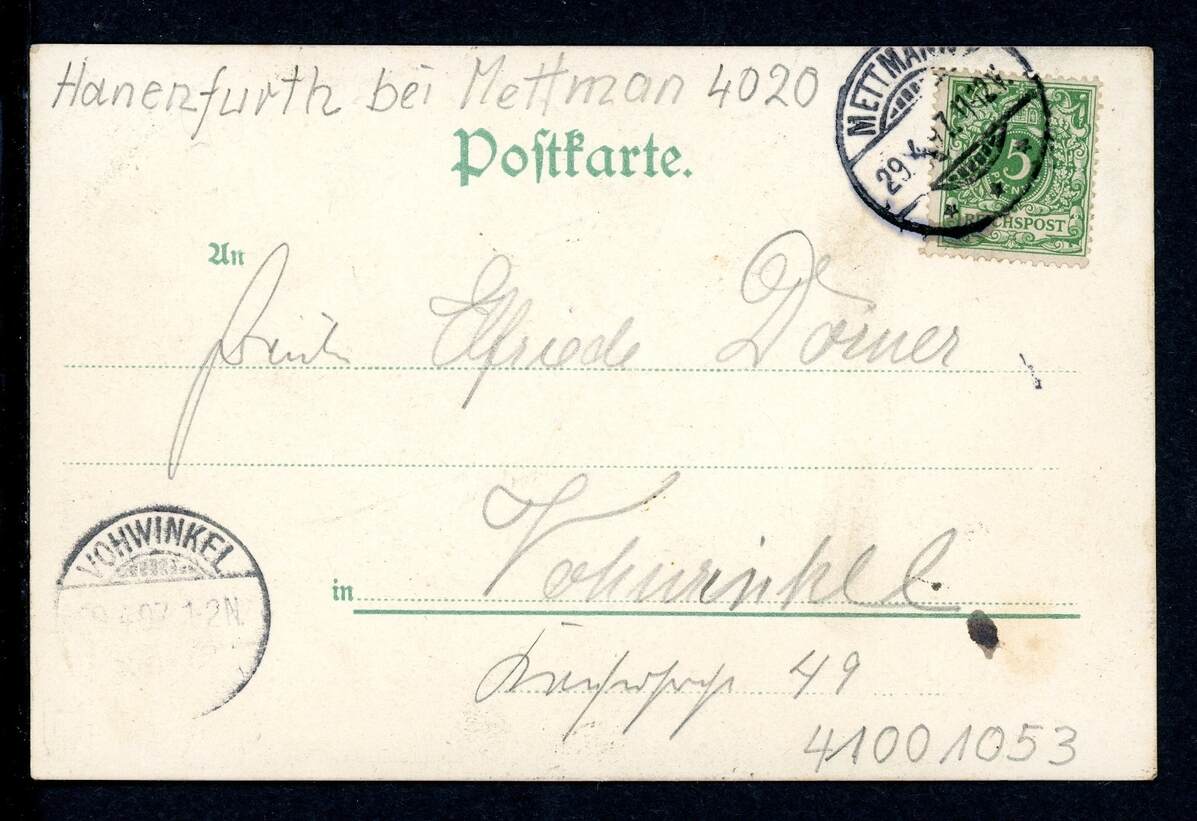 Hanenfurth bei Mettman 4020
METTMANN
29.4.97. 11-12V.
5
PFENNIG
REICHSPOST
Postkarte.
An
Elfriede Dörner
VOHWINKEL
4.97. 1-2N.
in Vohwinkel
49
41001053